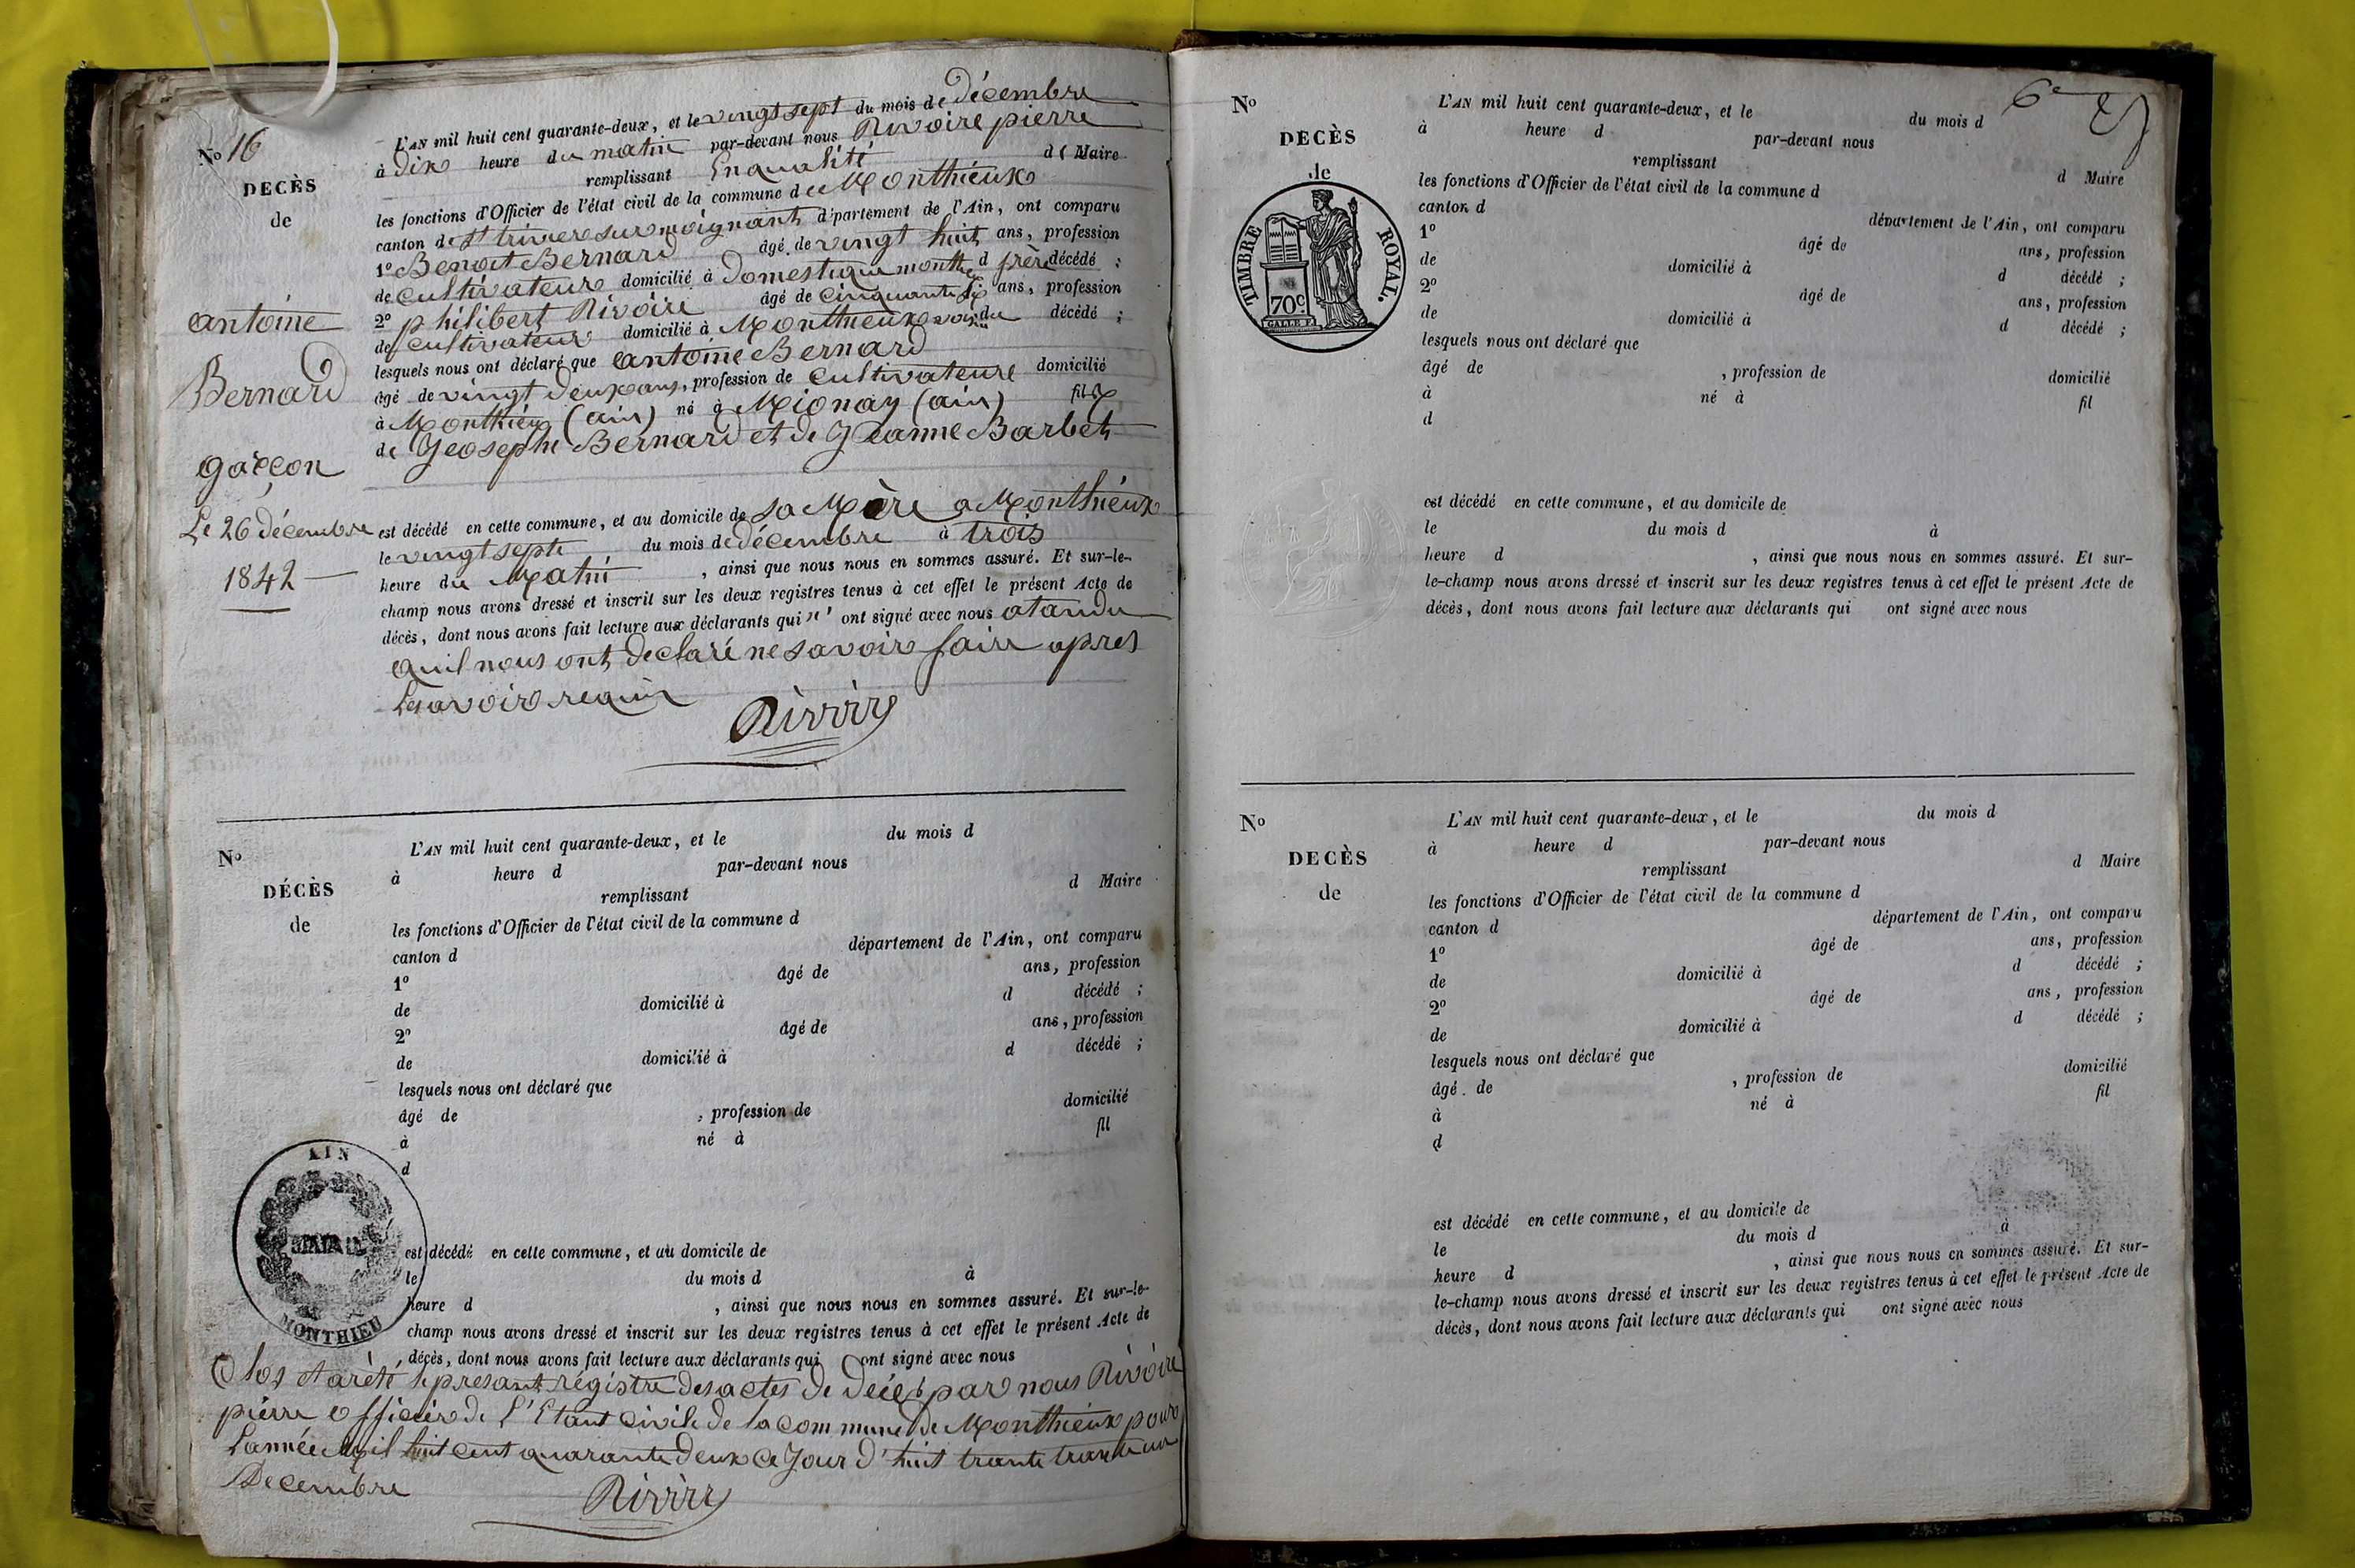 No 16
DECÈS
de
antoine
Bernard
garçon
Le 26 décembre
1842
L'AN mil huit cent quarante-deux, et le vingt sept du mois de décembre
à dix heure du matin par-devant nous Rivoire pierre
remplissant En qualité d( Maire
les fonctions d'Officier de l'état civil de la commune de Monthieux
canton de St trivier sur moignant département de l'Ain, ont comparu
1o Benoit Bernard âgé de vingt huit ans, profession
de cultivateur domicilié à Domestique monthieux d frère décédé ;
2o philibert Rivoire âgé de cinquante six ans, profession
de cultivateur domicilié à Monthieux voisin du décédé ;
lesquels nous ont déclaré que antoine Bernard
âgé de vingt deux ans, profession de cultivateur domicilié
à Monthieux (ain) né à Mionay (ain) fils
de Geosephe Bernard et de Jeanne Barbet
est décédé en cette commune, et au domicile de sa Mère a Monthieux
le vingt septe du mois de décembre à trois
heure du Matin , ainsi que nous nous en sommes assuré. Et sur-le-
champ nous avons dressé et inscrit sur les deux registres tenus à cet effet le présent Acte de
décès, dont nous avons fait lecture aux déclarants qui n' ont signé avec nous atandu
quil nous ont declaré ne savoir faire apres
Lesavoir requis
DÉCÈS
de
No
L'AN mil huit cent quarante-deux, et le du mois d
à heure d par-devant nous
remplissant d Maire
les fonctions d'Officier de l'état civil de la commune d
canton d département de l'Ain, ont comparu
1o âgé de ans, profession
de domicilié à d décédé ;
2o âgé de ans, profession
de domicilié à d décédé ;
lesquels nous ont déclaré que
âgé de , profession de domicilié
à né à fil
d
AIN
MAIRIE
MONTHIEU
est décédé en cette commune, et au domicile de
le du mois d à
heure d , ainsi que nous nous en sommes assuré. Et sur-le-
champ nous avons dressé et inscrit sur les deux registres tenus à cet effet le présent Acte de
décès, dont nous avons fait lecture aux déclarants qui ont signé avec nous
Clos et arèté le presant régistre des actes de decès par nous Rivoire
pierre officier de l'Etant civile de la commune de Monthieux pour
L'année Mil huit cent quarante deux ce Jour d'huit trante trante un
Decembre
6e
No
DECÈS
de
TIMBRE ROYAL.
70c
L'AN mil huit cent quarante-deux, et le du mois d
à heure d par-devant nous
remplissant d Maire
les fonctions d'Officier de l'état civil de la commune d
canton d département de l'Ain, ont comparu
1o âgé de ans, profession
de domicilié à d décédé ;
2o âgé de ans, profession
de domicilié à d décédé ;
lesquels nous ont déclaré que
âgé de , profession de domicilié
à né à fil
d
est décédé en cette commune, et au domicile de
le du mois d à
heure d , ainsi que nous nous en sommes assuré. Et sur-
le-champ nous avons dressé et inscrit sur les deux registres tenus à cet effet le présent Acte de
décès, dont nous avons fait lecture aux déclarants qui ont signé avec nous
No
DECÈS
de
L'AN mil huit cent quarante-deux, et le du mois d
à heure d par-devant nous
remplissant d Maire
les fonctions d'Officier de l'état civil de la commune d
canton d département de l'Ain, ont comparu
1o âgé de ans, profession
de domicilié à d décédé ;
2o âgé de ans, profession
de domicilié à d décédé ;
lesquels nous ont déclaré que
âgé de , profession de domicilié
à né à fil
d
est décédé en cette commune, et au domicile de
le du mois d à
heure d , ainsi que nous nous en sommes assuré. Et sur-
le-champ nous avons dressé et inscrit sur les deux registres tenus à cet effet le présent Acte de
décès, dont nous avons fait lecture aux déclarants qui ont signé avec nous